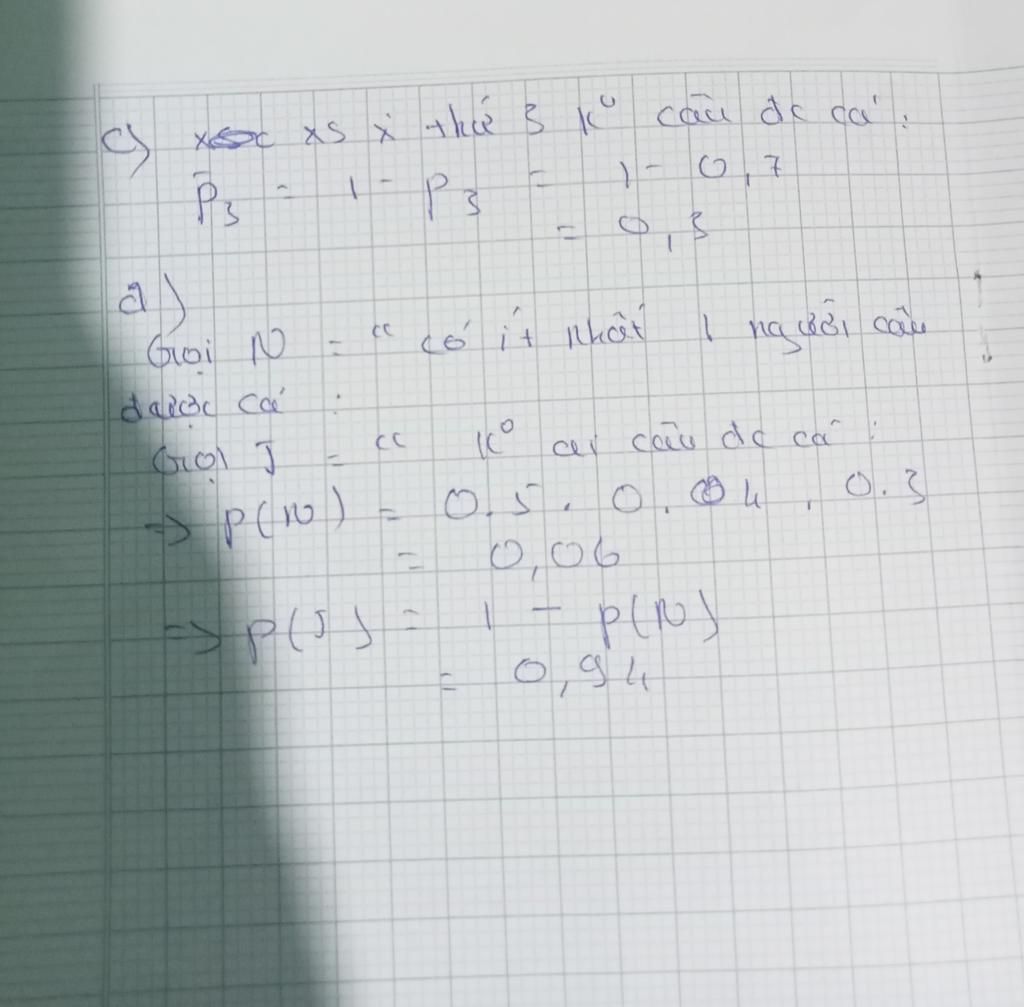 c) xs x' thứ 3 k° câu đc cá :
P̄3 = 1 - P3 = 1 - 0,7
= 0,3
d)
Gọi N = " có ít nhất 1 người câu
được cá :
Gọi J = " k° ai câu đc cá :
=> P(N) = 0.5 . 0.4 . 0.3
= 0,06
=> P(J) = 1 - P(N)
= 0,94